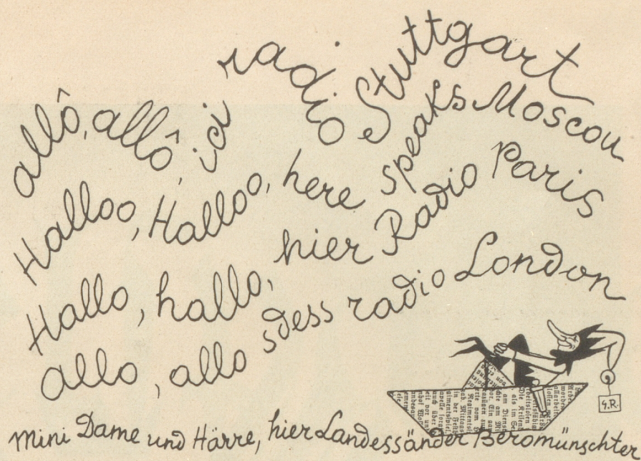 allô, allô, ici radio Stuttgart
Halloo, Halloo, here speaks Moscou
Hallo, hallo, hier Radio Paris
allo, allo sdess radio London
G.R.
mini Dame und Härre, hier Landessänder Beromünschter